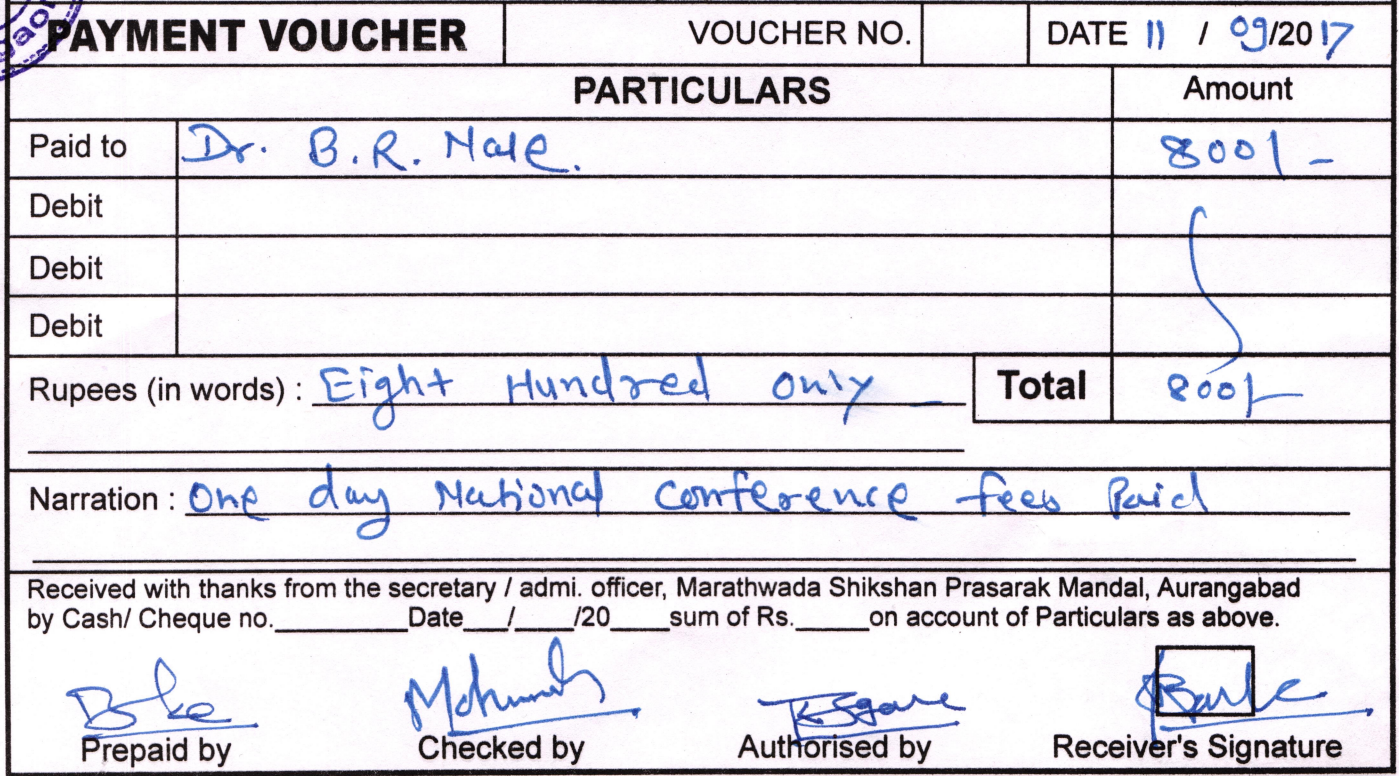 PAYMENT VOUCHER VOUCHER NO. DATE 11 / 09/2017
PARTICULARS Amount
Paid to Dr. B.R. Nale. 800/-
Debit
Debit
Debit
Rupees (in words) : Eight Hundred only Total 800/-
Narration : One day National Conference fees Paid
Received with thanks from the secretary / admi. officer, Marathwada Shikshan Prasarak Mandal, Aurangabad
by Cash/ Cheque no.__________Date___/____/20____sum of Rs._____on account of Particulars as above.
Prepaid by Checked by Authorised by Receiver's Signature